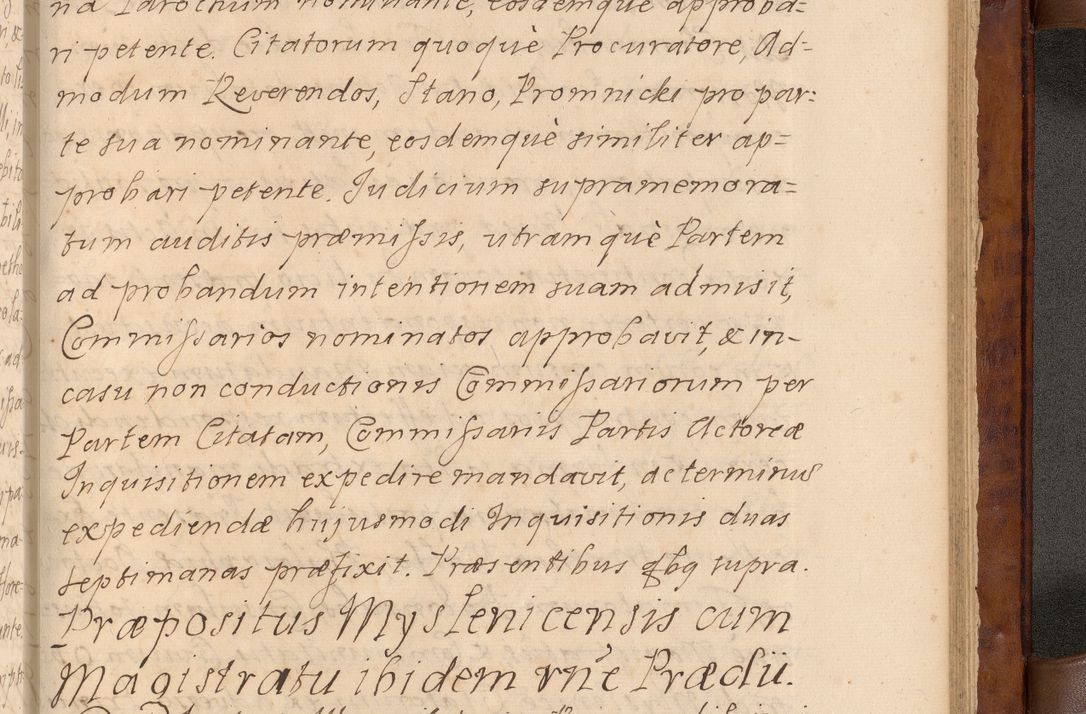 na Parochum nominante, eosdemque approba=
ri petente. Citatorum quoquè Procuratore, Ad=
modum Reverendos, Stano, Promnicki pro par=
te sua nominante, eosdemquè similiter ap=
probari petente. Judicium supramemora=
tum auditis præmissis, utramquè Partem
ad probandum intentionem suam admisit,
Commissarios nominatos approbavit, & in-
casu non conductionis Commissariorum per
Partem Citatam, Commissariis Partis Actoreæ
Inquisitionem expedire mandavit, ac terminus
expediendæ hujusmodi Inquisitionis duas
septimanas præfixit. Præsentibus qbq supra.
Præpositus Myslenicensis cum
Magistratu ibidem rñe Prædii.